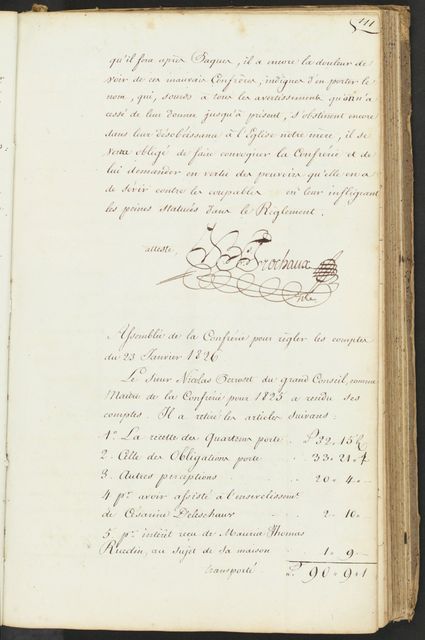 111
qu'il fera après Pâques, il a encore la douleur de
voir de ces mauvais Confrères, indignes d'en porter le
nom, qui, sourds à tous les avertissements qu'on n'a
cessé de leur donner jusqu'à présent, s'obstinent encore
dans leur désobéissance à l'Eglise notre mère, il se
verra obligé de faire convoquer la Confrérie et de
lui demander en vertu des pouvoirs qu'elle en a
de sévir contre les coupables en leur infligeant
les peines statuées dans le Règlement.
atteste,
Frochaux
Assemblée de la Confrérie pour régler les comptes
du 23 Janvier 1826
Le sieur Nicolas Perrotet du grand Conseil, comme
Maitre de la Confrérie pour 1825 a rendu ses
comptes. Il a retiré les articles suivans:
1°. La recette des Quarterus porte 32. 15
2. Celle des Obligations porte 33. 21. 1
3. Autres perceptions 20. 4.
4 pr. avoir assisté à l'ensevelissemt.
de Césarine Deleschaux 2. 10.
5 pr. intérêt reçu de Maurice Thomas
Ruedin, au sujet de sa maison 1. 9
transporté 90. 9. 1